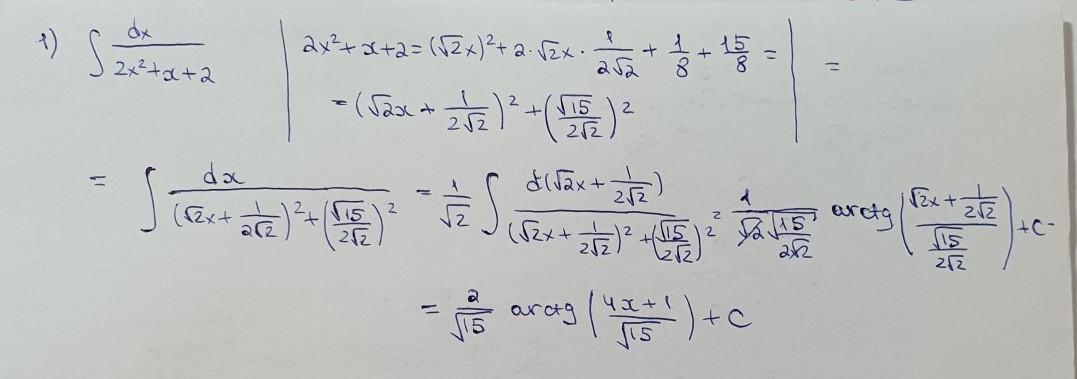 1) ∫ dx / (2x²+x+2) | 2x²+x+2 = (√2x)² + 2·√2x · 1/(2√2) + 1/8 + 15/8 = | =
= (√2x + 1/(2√2))² + (√15/(2√2))²
= ∫ dx / ((√2x + 1/(2√2))² + (√15/(2√2))²) = 1/√2 ∫ d(√2x + 1/(2√2)) / ((√2x + 1/(2√2))² + (√15/(2√2))²) = 1/(√2 √15/(2√2)) arctg ((√2x + 1/(2√2)) / (√15/(2√2))) + C =
= 2/√15 arctg ((4x+1)/√15) + C